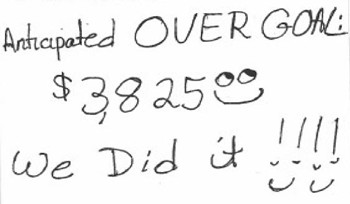 Anticipated OVER GOAL:
$3,825
We Did it !!!!